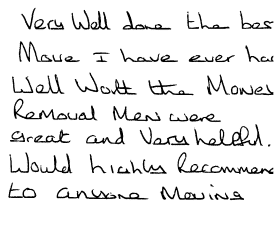 Very Well done the bes
Move I have ever ha
Well Wort the Money
Removal Men were
great and Very helpful.
Would highly Recommen
to anyone Moving